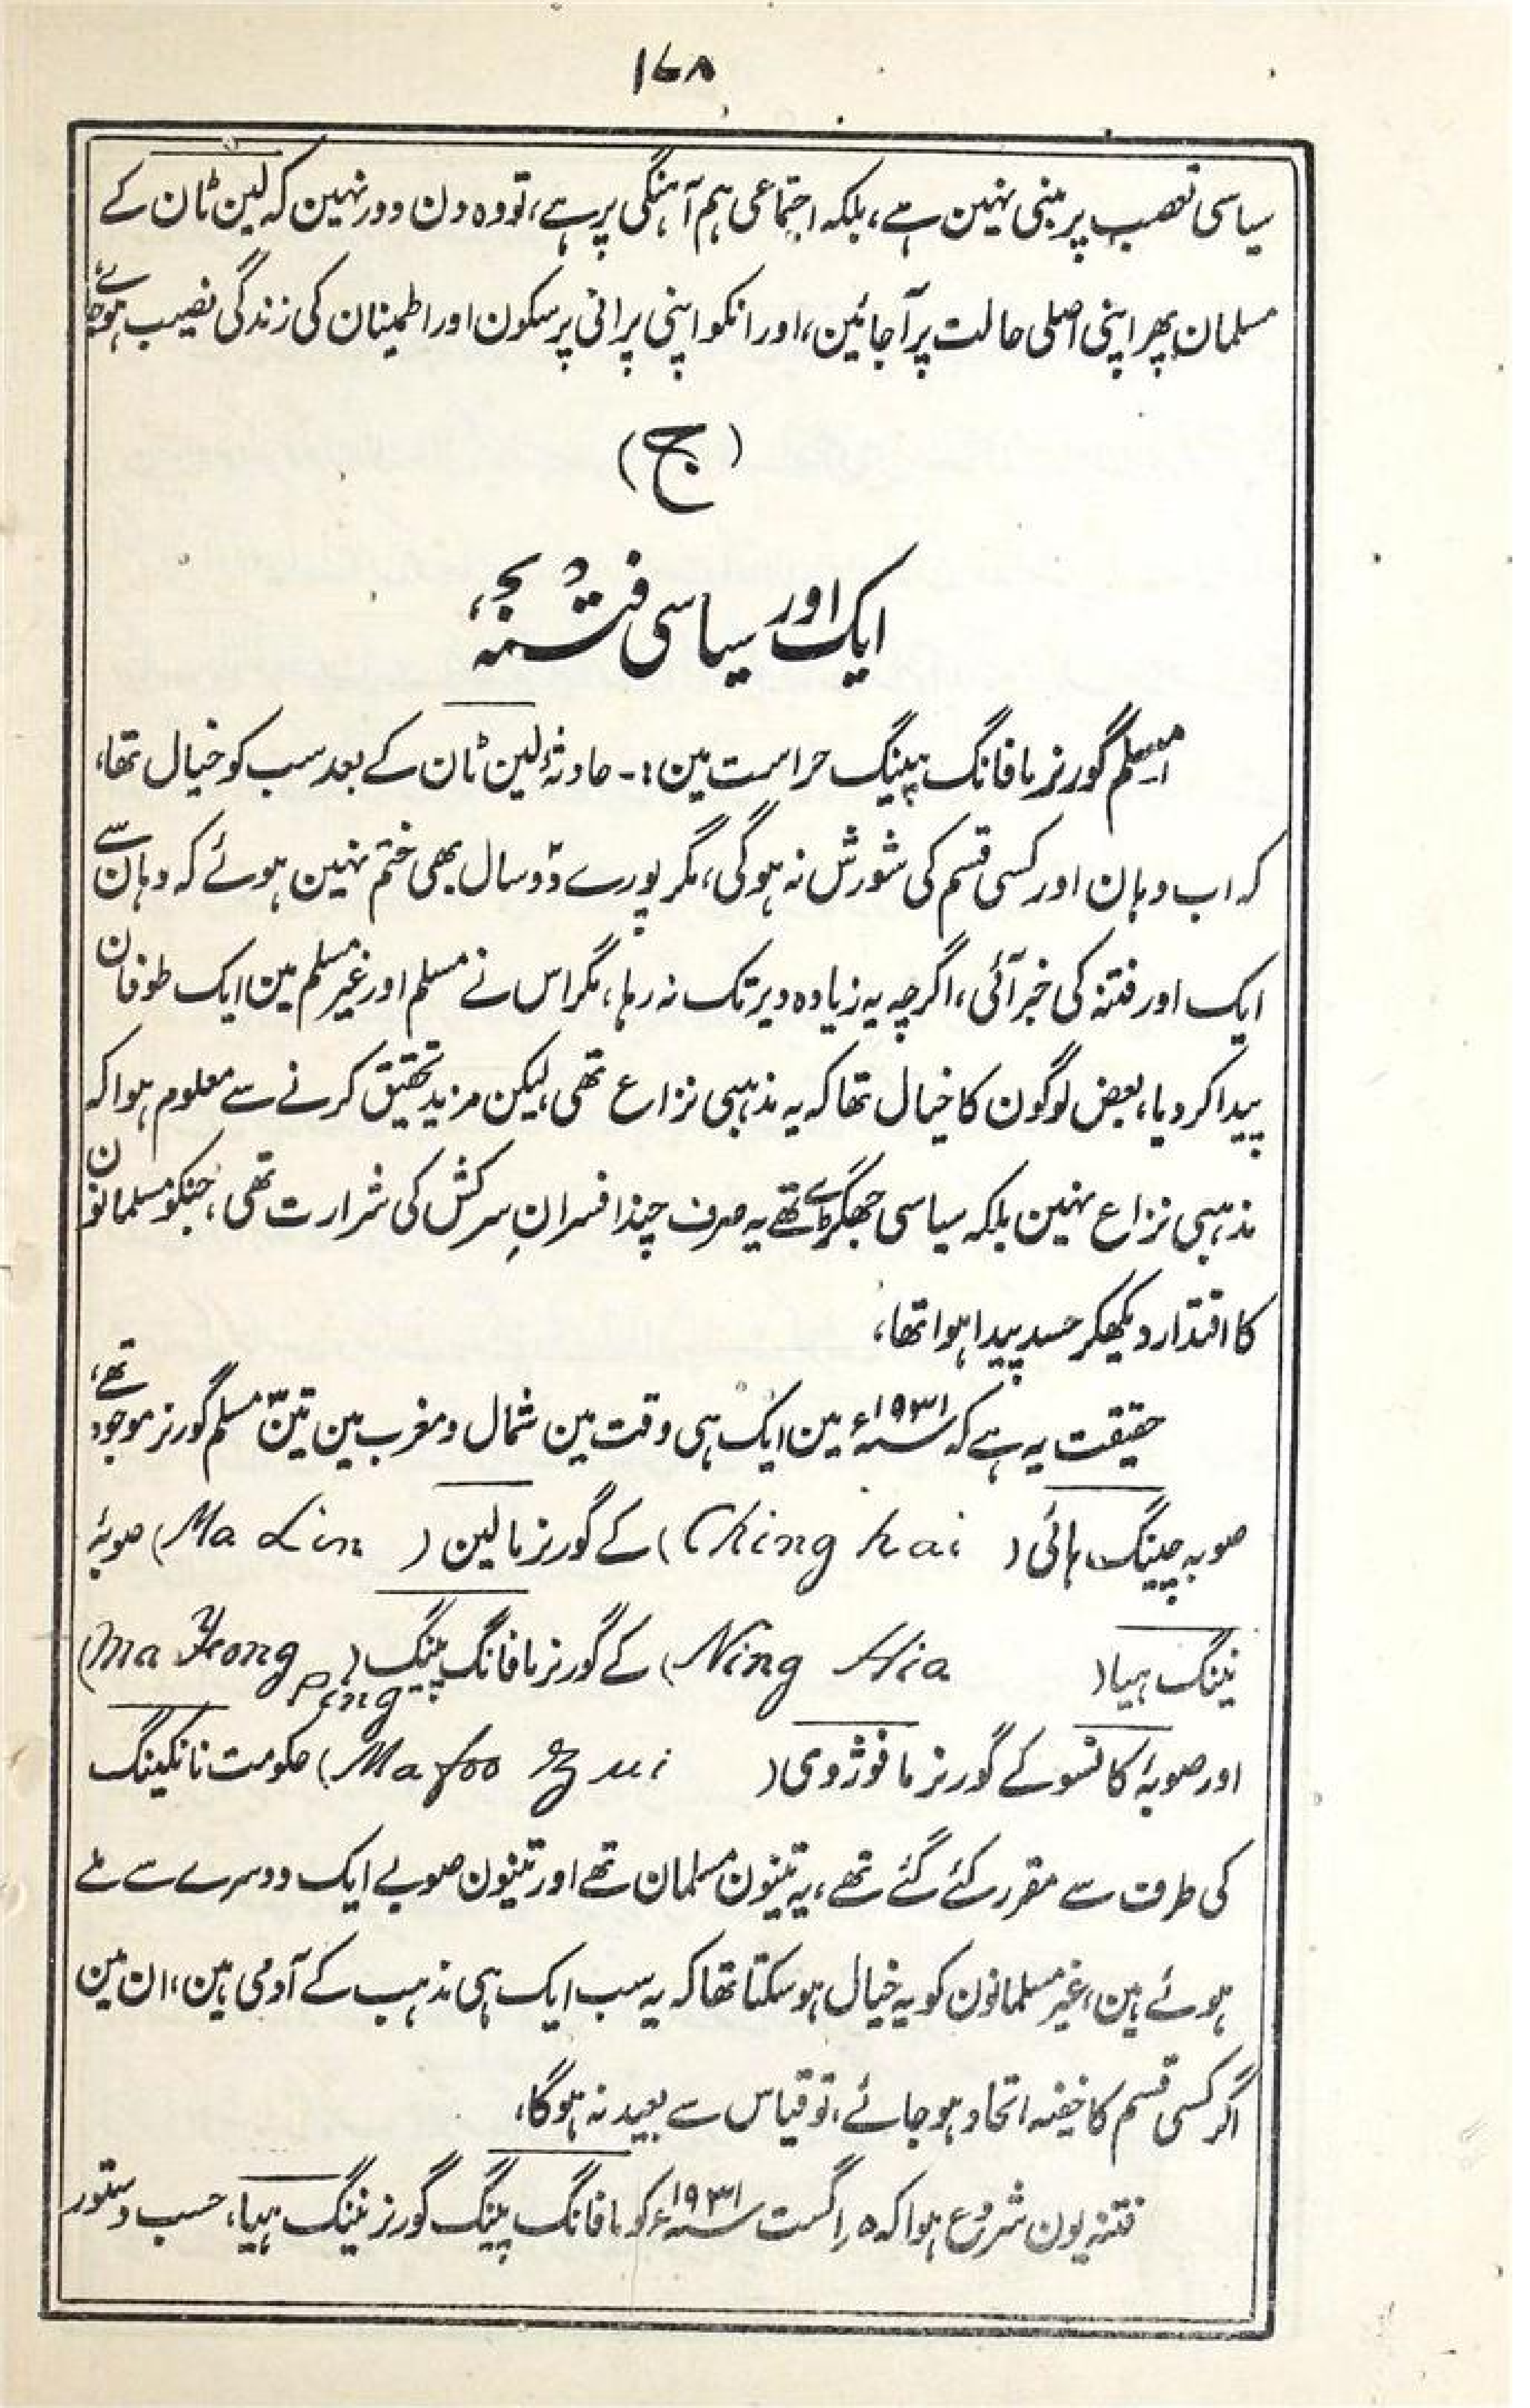 ۱۶۸
سیاسی تعصب پر مبنی نہین ہے، بلکہ اجتماعی ہم آہنگی پر ہے، تو وہ دن دور نہین کہ لین ٹان کے
مسلمان پھر اپنی اصلی حالت پر آجائین، اور انکو اپنی پرانی پرسکون اور اطمینان کی زندگی نصیب ہوجائے
(ج)
ایک اور سیاسی فتنہ
مسلم گورنر مافانگ پینگ حراست مین:۔ حادثۂ لین ٹان کے بعد سب کو خیال تھا،
کہ اب وہان اور کسی قسم کی شورش نہ ہوگی، مگر پورے دو سال بھی ختم نہین ہوئے کہ وہان سے
ایک اور فتنہ کی خبر آئی، اگرچہ یہ زیادہ دیر تک نہ رہا، مگر اس نے مسلم اور غیر مسلم مین ایک طوفان
پیدا کر دیا، بعض لوگون کا خیال تھا کہ یہ مذہبی نزاع تھی، لیکن مزید تحقیق کرنے سے معلوم ہوا کہ
مذہبی نزاع نہین بلکہ سیاسی جھگڑے تھے یہ صرف چند افسرانِ سرکش کی شرارت تھی، جنکو مسلمانون
کا اقتدار دیکھکر حسد پیدا ہوا تھا،
حقیقت یہ ہے کہ ۱۹۳۱ء مین ایک ہی وقت مین شمال و مغرب مین تین مسلم گورنر موجود تھے،
صوبہ چینگ ہائی (Ching hai) کے گورنر مالین (Ma Lin) صوبۂ
نینگ ہیا (Ning Hia) کے گورنر مافانگ پینگ (Ma Hong Ping)
اور صوبۂ کانسو کے گورنر مافوژوی (Ma foo Zui) حکومت نانکینگ
کی طرف سے مقرر کئے گئے تھے، یہ تینون مسلمان تھے اور تینون صوبے ایک دوسرے سے ملے
ہوئے ہین، غیر مسلمانون کو یہ خیال ہو سکتا تھا کہ یہ سب ایک ہی مذہب کے آدمی ہین، ان مین
اگر کسی قسم کا خفیہ اتحاد ہو جائے، تو قیاس سے بعید نہ ہوگا،
فتنہ یون شروع ہوا کہ ۵ راگست ۱۹۳۱ء کو مافانگ پینگ گورنر نینگ ہیا، حسب دستور